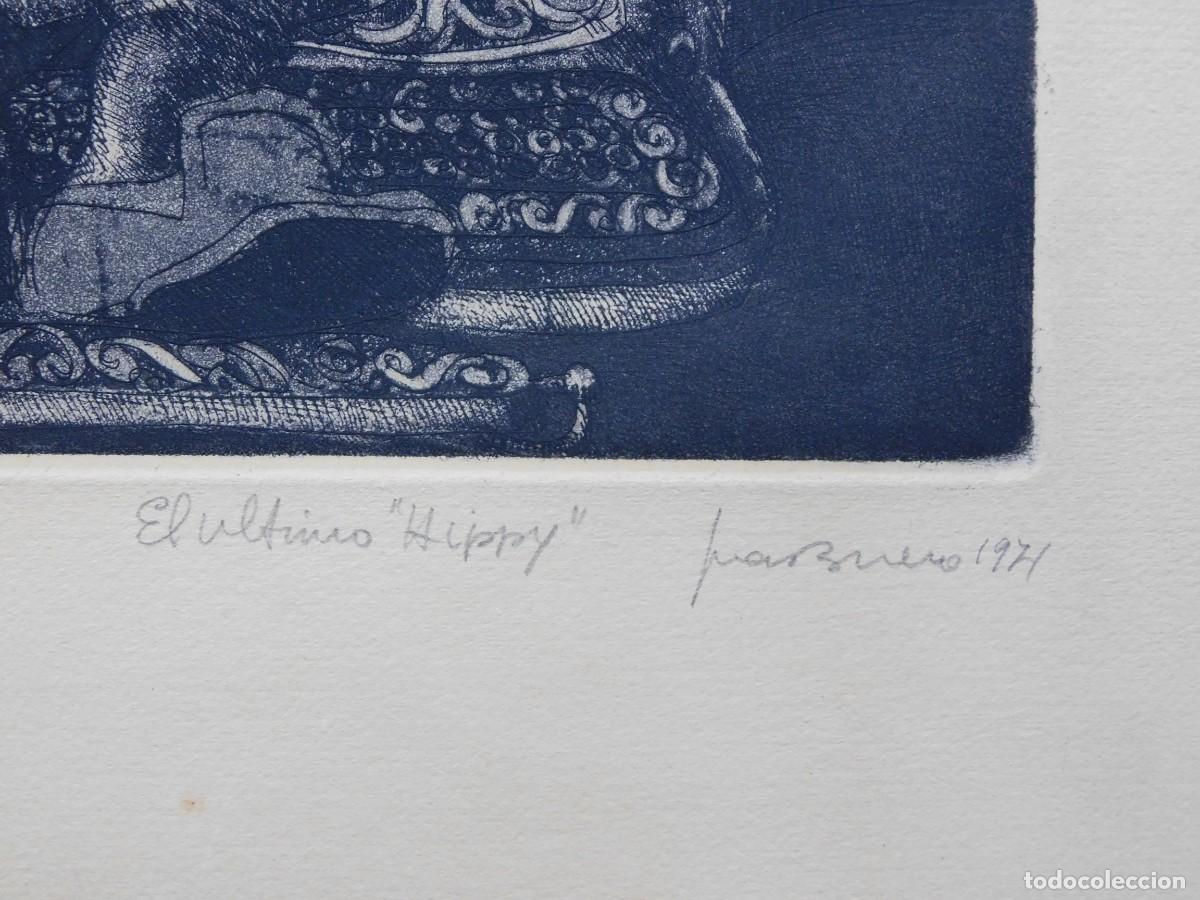 El ultimo "Hippy" 1971
todocoleccion